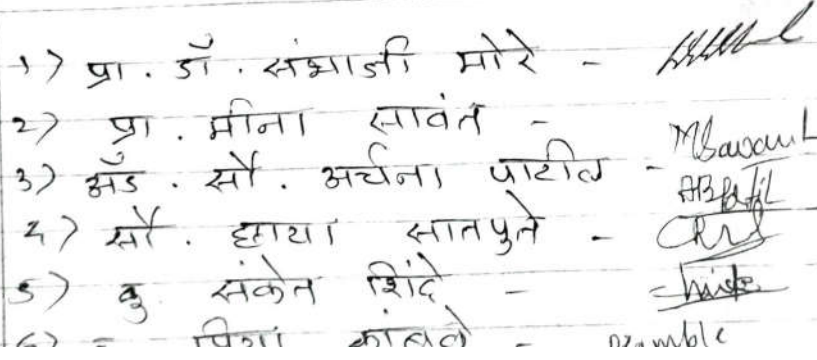 १) प्रा. डॉ. संभाजी मोरे -
२) प्रा. मीना सावंत - MSavant
३) अॅड. सौ. अर्चना पाटील - ABPatil
४) सौ. छाया सातपुते -
५) कु संकेत शिंदे - Shinde
६) प्रिया कांबळे - Kamble